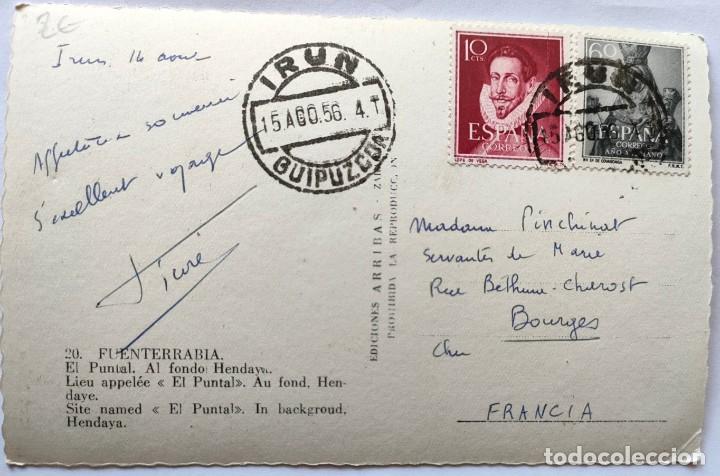 2€
Irun, 14 aout
Affectueux souvenir
d'excellent voyage
20. FUENTERRABIA.
El Puntal. Al fondo: Hendaya.
Lieu appelée « El Puntal». Au fond, Hen-
daye.
Site named « El Puntal». In backgroud,
Hendaya.
IRUN
15.AGO.56. 4.T
GUIPUZCOA
EDICIONES ARRIBAS -
PROHIBIDA LA REPRODUCCION
10
CTS.
ESPAÑA
CORREOS
LOPE DE VEGA
60
ESPAÑA
CORREOS
AÑO MARIANO
F.N.M.T.
IRUN
15.AGO.56. 4
Madame Pinchinat
Servantes de Marie
Rue Béthune-Charost
Bourges
Cher
FRANCIA
todocoleccion.net